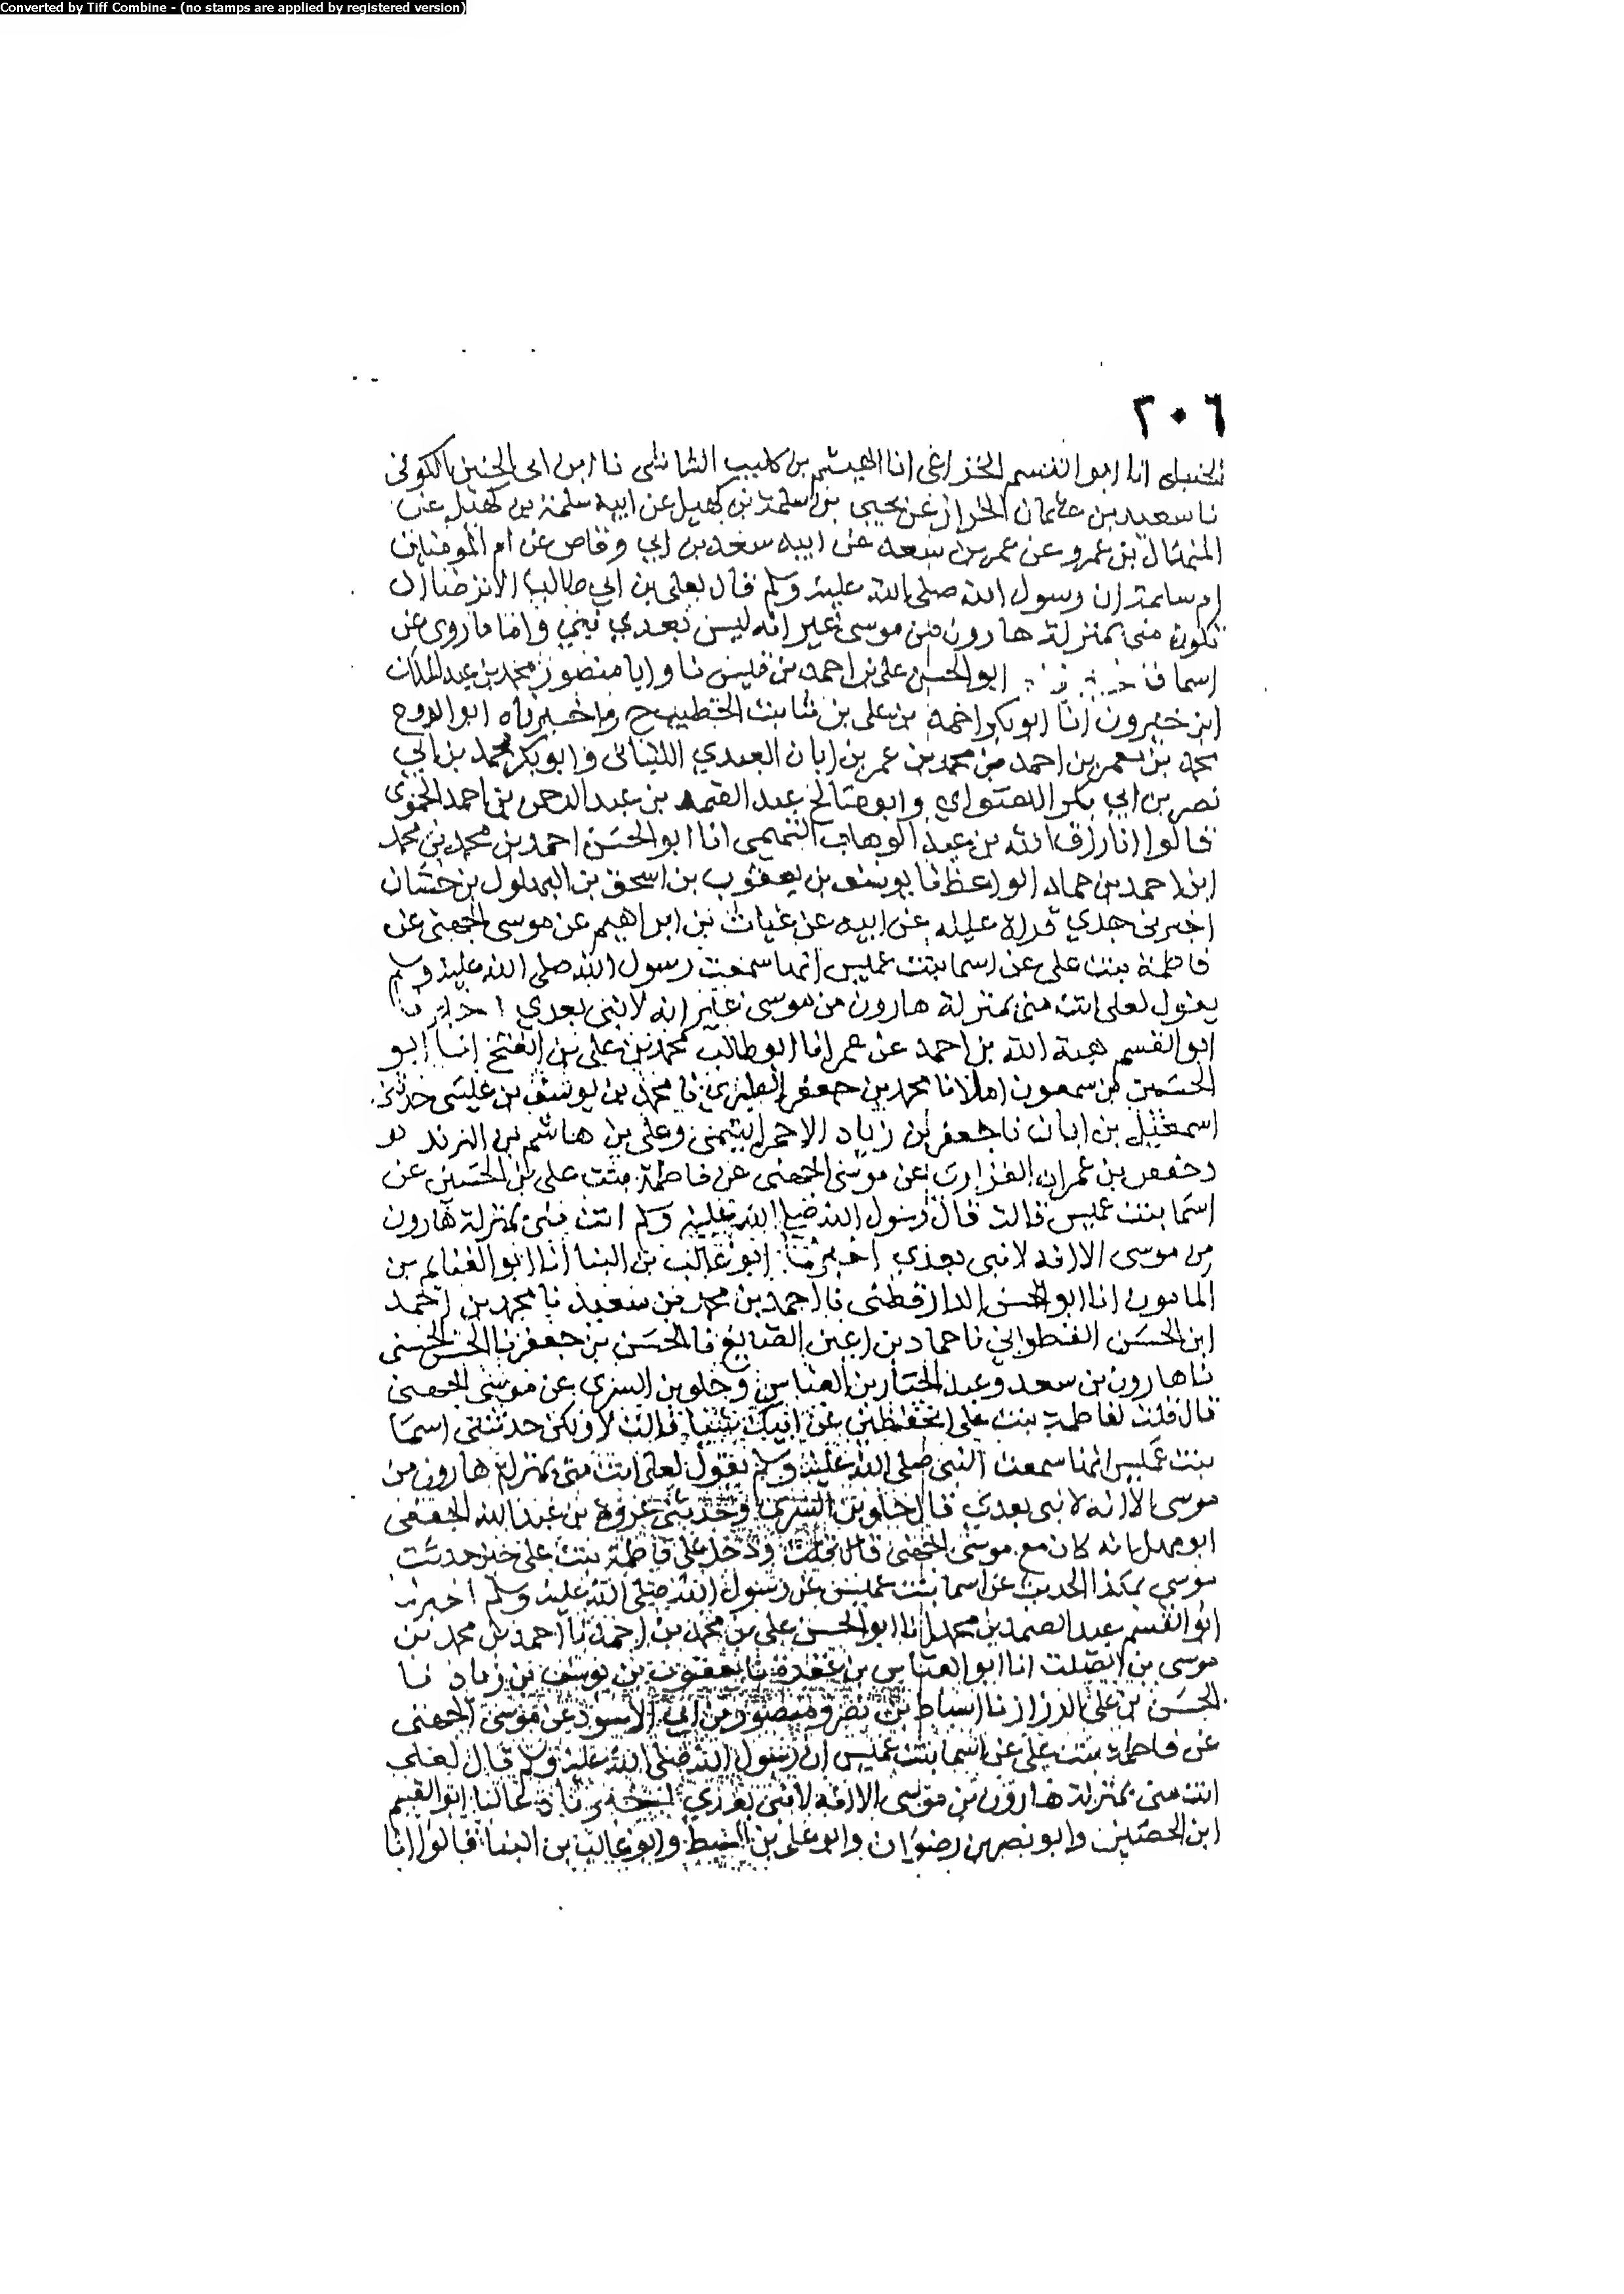 Converted by Tiff Combine - (no stamps are applied by registered version)
٢٠٦
انا ابو القسم الخزاعى انا الهيثم بن كليب الشاشى نا ابن ابى الحنين الكوفى
نا سعيد بن عثمان الخراز عن يحيى بن سلمة بن كهيل عن ابيه سلمة بن كهيل عن
المنهال بن عمرو عن عمر بن سعد عن ابيه سعد بن ابي وقاص عن ام المومنين
ام سلمة ان رسول الله صلى الله عليه وسلم قال لعلى بن ابي طالب الا ترضا ان
تكون منى بمنزلة هارون من موسى غير انه ليس بعدي نبي واما ما روى عن
اسما ابو الحسن على بن احمد بن قبيس نا وابا منصور محمد بن عبد الملك
ابن خيرون انا ابو بكر احمد بن على بن ثابت الخطيب ح واخبرناه ابو الروح
محمد بن معمر بن احمد بن محمد بن عمر بن ابان العبدي اللنبانى وابو بكر محمد بن ابي
نصر بن ابي بكر اللفتواي وابو صالح عبد الصمد بن عبد الرحمن بن احمد الحنوى
قالوا انا رزق الله بن عبد الوهاب التميمى انا ابو الحسن احمد بن محمد بن محمد
ابن احمد بن حماد الواعظ نا يوسف بن يعقوب بن اسحق بن البهلول بن حسان
اخبرنى جدي قراة عليه عن ابيه عن غياث بن ابراهيم عن موسى الجهنى عن
فاطمة بنت على عن اسما بنت عميس انها سمعت رسول الله صلى الله عليه وسلم
يقول لعلى انت منى بمنزلة هارون من موسى غير انه لا نبى بعدي اخبرنا
ابو القسم هبة الله بن احمد بن عمر انا ابو طالب محمد بن على بن الفتح انا ابو
الحسين بن سمعون املا نا محمد بن جعفر المطيري نا محمد بن يوسف بن عيسى حدثنى
اسمعيل بن ابان نا جعفر بن زياد الاحمر التيمى وعلى بن هاشم بن البريد
وحفص بن عمران الفزارى عن موسى الجهنى عن فاطمة بنت على بن الحسين عن
اسما بنت عميس قالت قال رسول الله صلى الله عليه وسلم انت منى بمنزلة هارون
من موسى الا انه لا نبى بعدي اخبرنا ابو غالب بن البنا انا ابو الغنايم بن
المامون انا ابو الحسن الدارقطنى نا احمد بن محمد بن سعيد نا محمد بن احمد
ابن الحسن القطواني نا حماد بن اعين الصايغ نا الحسن بن جعفر بن الحسن الحسنى
نا هارون بن سعد وعبد الجبار بن العباس وخلو بن السرى عن موسى الجهنى
قال قلت لفاطمة بنت على اتحفظين عن ابيك شيئا قالت لا ولكن حدثتنى اسما
بنت عميس انها سمعت النبى صلى الله عليه وسلم يقول لعلى انت منى بمنزلة هارون من
موسى الا انه لا نبى بعدي قال خلو بن السرى وحدثنى عروة بن عبد الله الجعفى
ابو مهل انه كان مع موسى الجهنى قال ودخل على فاطمة بنت على حين حدثت
موسى بهذا الحديث عن اسما بنت عميس عن رسول الله صلى الله عليه وسلم اخبرنا
ابو القسم عبد الصمد بن محمد انا ابو الحسن على بن محمد بن احمد نا احمد بن محمد بن
موسى بن الصلت انا ابو العباس بن عقدة نا يعقوب بن يوسف بن زياد نا
الحسن بن على الرزاز نا اسباط بن نصر ومنصور بن ابي الاسود عن موسى الجهنى
عن فاطمة بنت على عن اسما بنت عميس ان رسول الله صلى الله عليه وسلم قال لعلى
انت منى بمنزلة هارون من موسى الا انه لا نبى بعدي اخبرناه عاليا ابو القسم
ابن الحصين وابو نصر بن رضوان وابو على بن السبط وابو غالب بن البنا قالوا انا